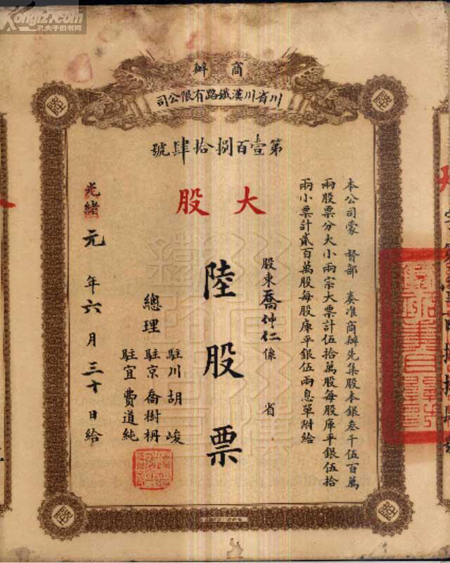 Kongfz.com
孔夫子旧书网
商辦
川省川漢鐵路有限公司
第壹百捌拾肆號
大股
本公司蒙 督部 奏准商辦先集股本銀叁千伍百萬
兩股票分大小兩宗大票計伍拾萬股每股庫平銀伍拾
兩小票計貳百萬股每股庫平銀伍兩息單附給
股東喬仲仁係 省
陸股票
總理
駐川 胡峻
駐京 喬樹枬
駐宜 費道純
光緒元年六月三十日給
陸
陸
陸
陸